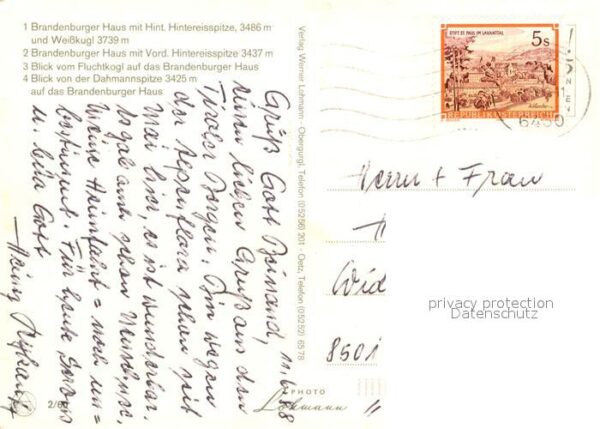 1 Brandenburger Haus mit Hint. Hintereisspitze, 3486 m
und Weißkugl 3739 m
2 Brandenburger Haus mit Vord. Hintereisspitze 3437 m
3 Blick vom Fluchtkogl auf das Brandenburger Haus
4 Blick von der Dahmannspitze 3425 m
auf das Brandenburger Haus
Verlag Werner Lohmann - Obergurgl, Telefon (05256) 201 - Oetz, Telefon (05252) 6578
STIFT ST. PAUL IM LAVANTTAL
5s
REPUBLIK ÖSTERREICH
6450
11.6.88
Grüß Gott
einen lieben Gruß aus den
Tiroler Bergen. Bin wegen
der Alpenflora schon seit
Mai hier, es ist wunderbar.
schon
Meine Heimfahrt = noch un=
bestimmt. Für heute
u. beh. Gott
Herrn + Frau
H
Wid
8501
privacy protection
Datenschutz
PHOTO
Lohmann
2/6